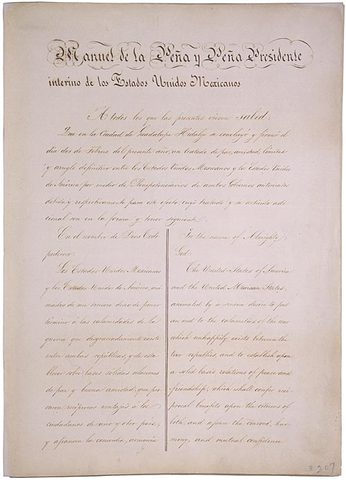 Manuel de la Peña y Peña Presidente
interino de los Estados Unidos Mexicanos
A todos los que las presentes vieren sabed.
Que en la Ciudad de Guadalupe Hidalgo se concluyó y firmó el
día dos de Febrero del presente año, un tratado de paz, amistad, límites
y arreglo definitivo entre los Estados Unidos Mexicanos y los Estados Unidos
de América por medio de Plenipotenciarios de ambos Gobiernos autorizados
debida y respectivamente para este efecto, cuyo tratado y su artículo adi-
cional son en la forma y tenor siguiente.
En el nombre de Dios Todo
poderoso
Los Estados Unidos Mexicanos
y los Estados Unidos de América, ani-
mados de un sincero deseo de poner
término a las calamidades de la
guerra que desgraciadamente existe
entre ambas repúblicas, y de esta-
blecer sobre bases sólidas relaciones
de paz y buena amistad, que pro-
curen recíprocas ventajas a los
ciudadanos de uno y otro país,
y afiancen la concordia, armonía
In the name of Almighty
God:
The United States of America
and the United Mexican States,
animated by a sincere desire to put
an end to the calamities of the war
which unhappily exists between the
two republics, and to establish upon
a solid basis relations of peace and
friendship, which shall confer reci-
procal benefits upon the citizens of
both, and assure the concord, har-
mony, and mutual confidence
207